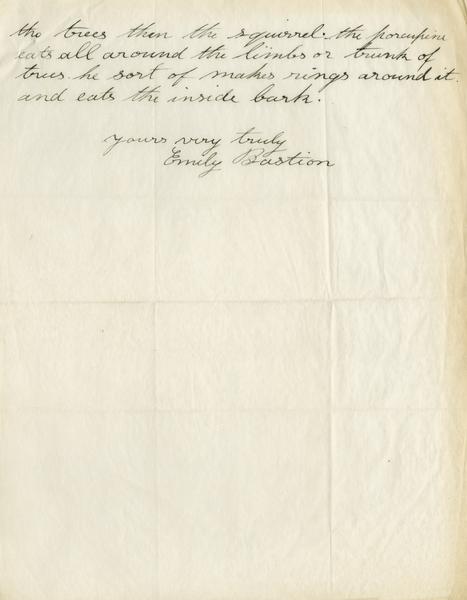 the trees then the squirrel. the porcupine
eats all around the limbs or trunk of
trees. he sort of makes rings around it.
and eats the inside bark.
yours very truly
Emily Bastion